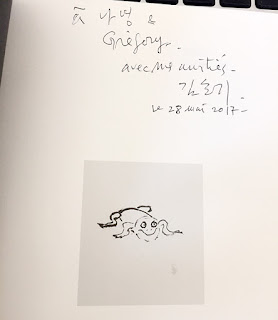 à &
Grégory.
avec mes amitiés.
le 28 mai 2017-